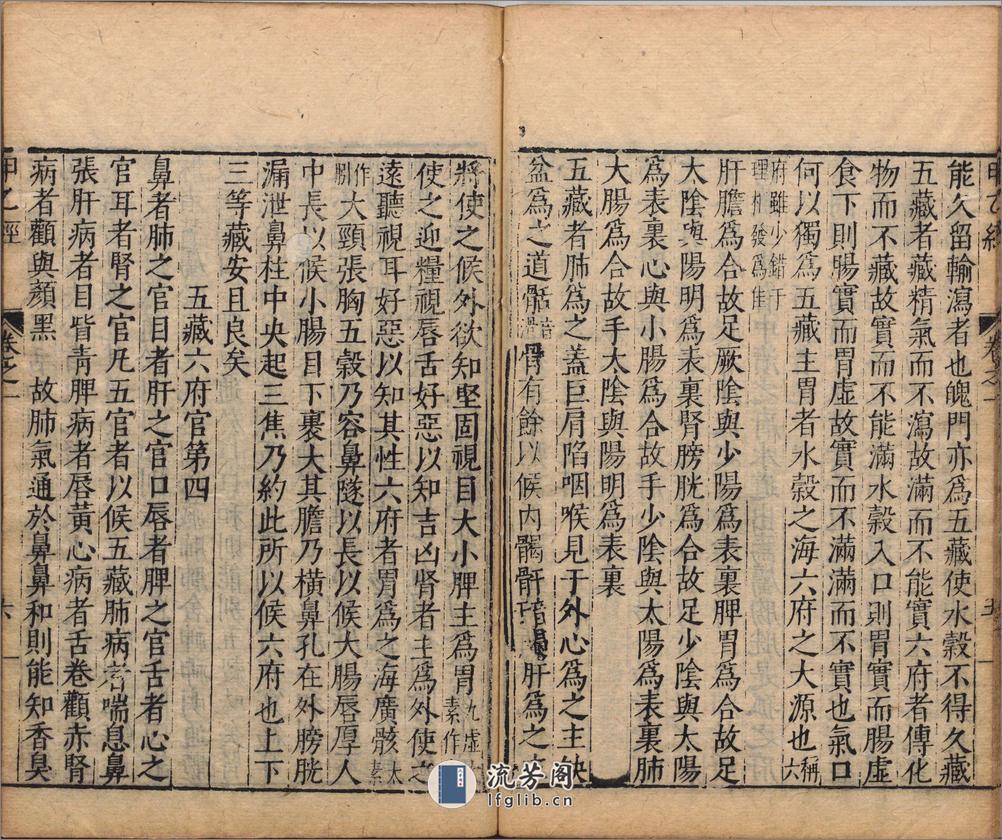 能久留輸瀉者也魄門亦爲五藏使水穀不得久藏
五藏者藏精氣而不瀉故滿而不能實六府者傳化
物而不藏故實而不能滿水穀入口則胃實而腸虛
食下則腸實而胃虛故實而不滿滿而不實也氣口
何以獨爲五藏主胃者水穀之海六府之大源也稱六
府雖少錯于
理相發爲佳
肝膽爲合故足厥陰與少陽爲表裏脾胃爲合故足
太陰與陽明爲表裏腎膀胱爲合故足少陰與太陽
爲表裏心與小腸爲合故手少陰與太陽爲表裏肺
大腸爲合故手太陰與陽明爲表裏
五藏者肺爲之蓋巨肩陷咽喉見于外心爲之主缺
盆爲之道骨有餘以候内䯏骬肝爲之
將使之候外欲知堅固視目大小脾主爲胃九虛素作
使之迎糧視唇舌好惡以知吉凶腎者主爲外使之
遠聽視耳好惡以知其性六府者胃爲之海廣骸太素
作大頸張胸五穀乃容鼻隧以長以候大腸唇厚人
中長以候小腸目下裹大其膽乃橫鼻孔在外膀胱
漏泄鼻柱中央起三焦乃約此所以候六府也上下
三等藏安且良矣
五藏六府官第四
鼻者肺之官目者肝之官口唇者脾之官舌者心之
官耳者腎之官凡五官者以候五藏肺病者喘息鼻
張肝病者目眥青脾病者唇黃心病者舌卷顴赤腎
病者顴與顏黑
故肺氣通於鼻鼻和則能知香臭
甲乙經
卷之一
六
流芳阁
lfglib.cn